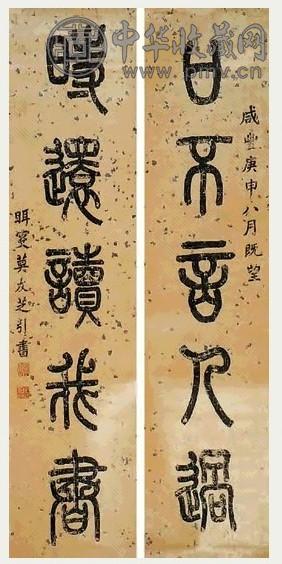 口不言人過
咸豐庚申八月既望
時還讀我書
眲叟莫友芝引書
中华收藏网